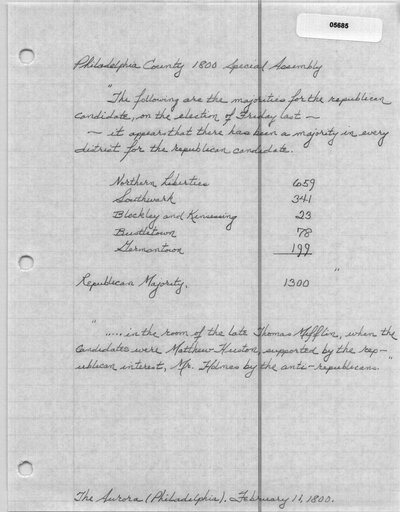 05685
Philadelphia County 1800 Special Assembly
"The following are the majorities for the republican
candidate, on the election of Friday last —
— it appears that there has been a majority in every
district for the republican candidate.
Northern Liberties 659
Southwark 341
Blockley and Kinsessing 23
Bustletown 78
Germantown 199
"
Republican Majority. 1300
"..... in the room of the late Thomas Mifflin, when the
candidates were Matthew Huston, supported by the rep-
ublican interest, Mr. Holmes by the anti-republicans."
The Aurora (Philadelphia). February 11, 1800.